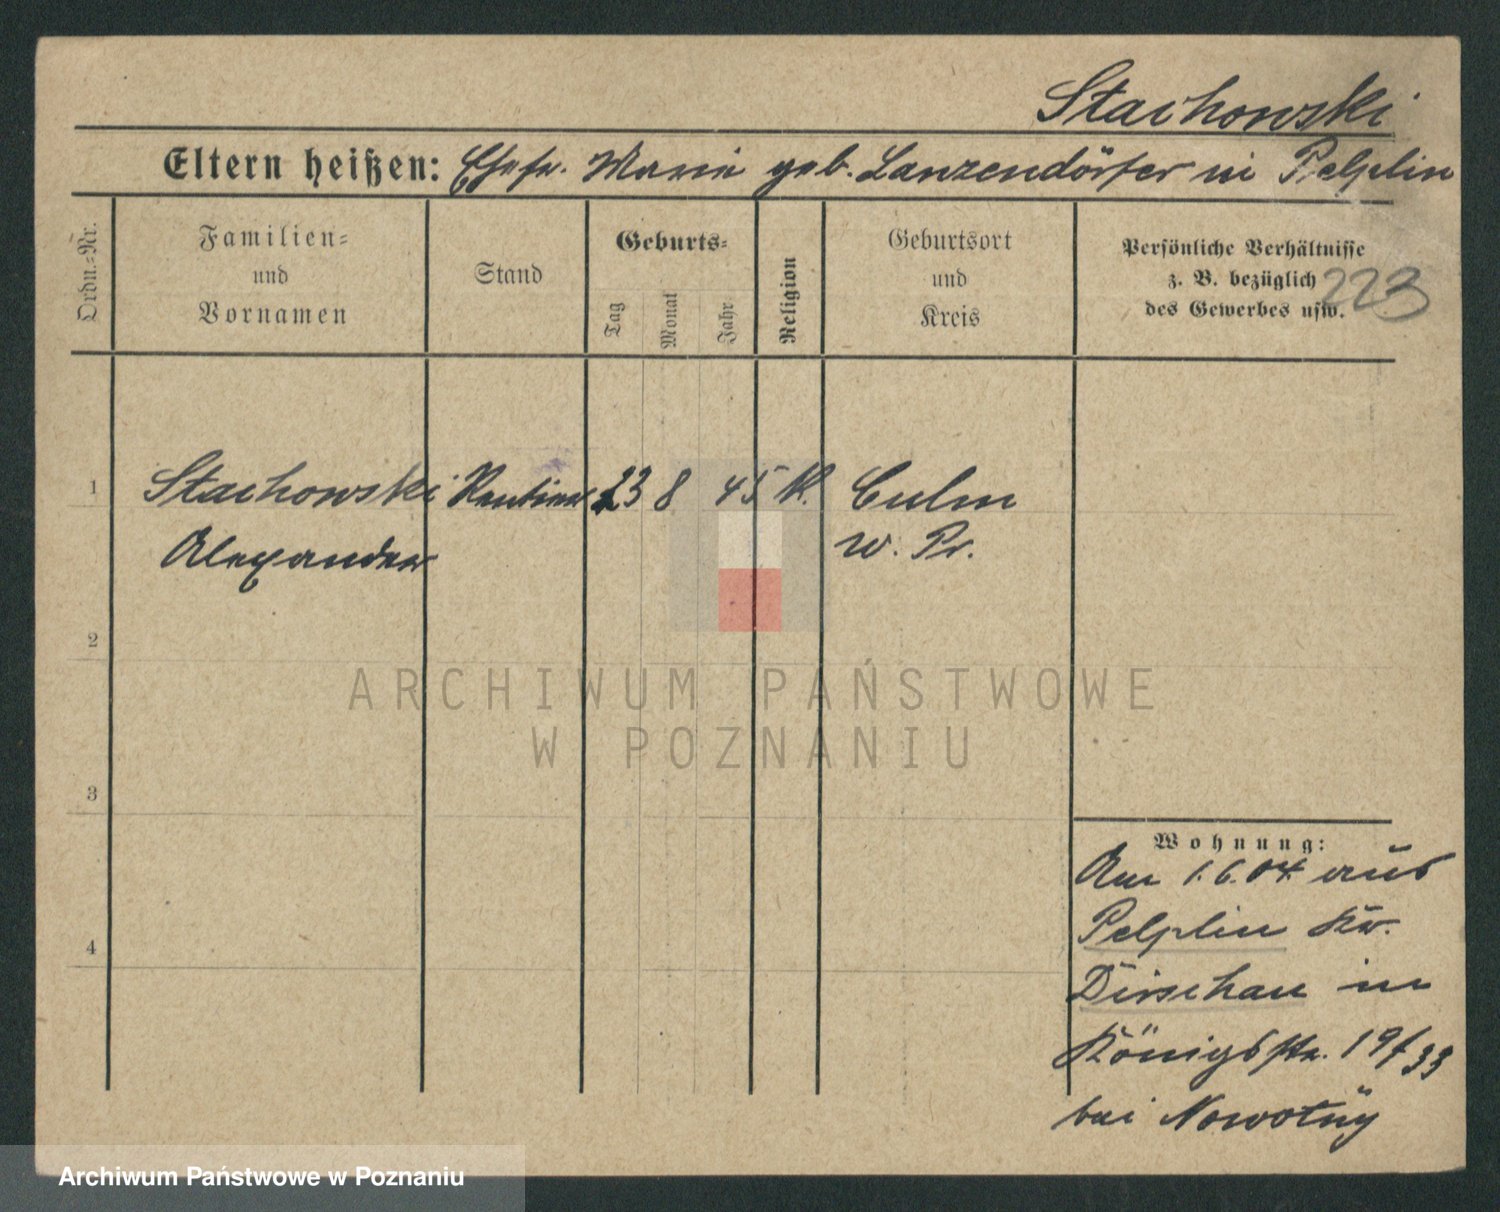 Stachowski
Eltern heißen: Ehefr. Marie geb. Lanzendörfer in Pelplin
Ordn.-Nr.
Familien-
und
Vornamen
Stand
Geburts-
Tag
Monat
Jahr
Religion
Geburtsort
und
Kreis
Persönliche Verhältnisse
z. B. bezüglich
des Gewerbes usw.
223
1 Stachowski Rentier 23 8 45 K. Culm
Alexander W. Pr.
2
3
4
Wohnung:
Am 1.6.04 aus
Pelplin Kr.
Dirschau in
Königsstr. 19/33
bei Nowotny
ARCHIWUM PAŃSTWOWE
W POZNANIU
Archiwum Państwowe w Poznaniu